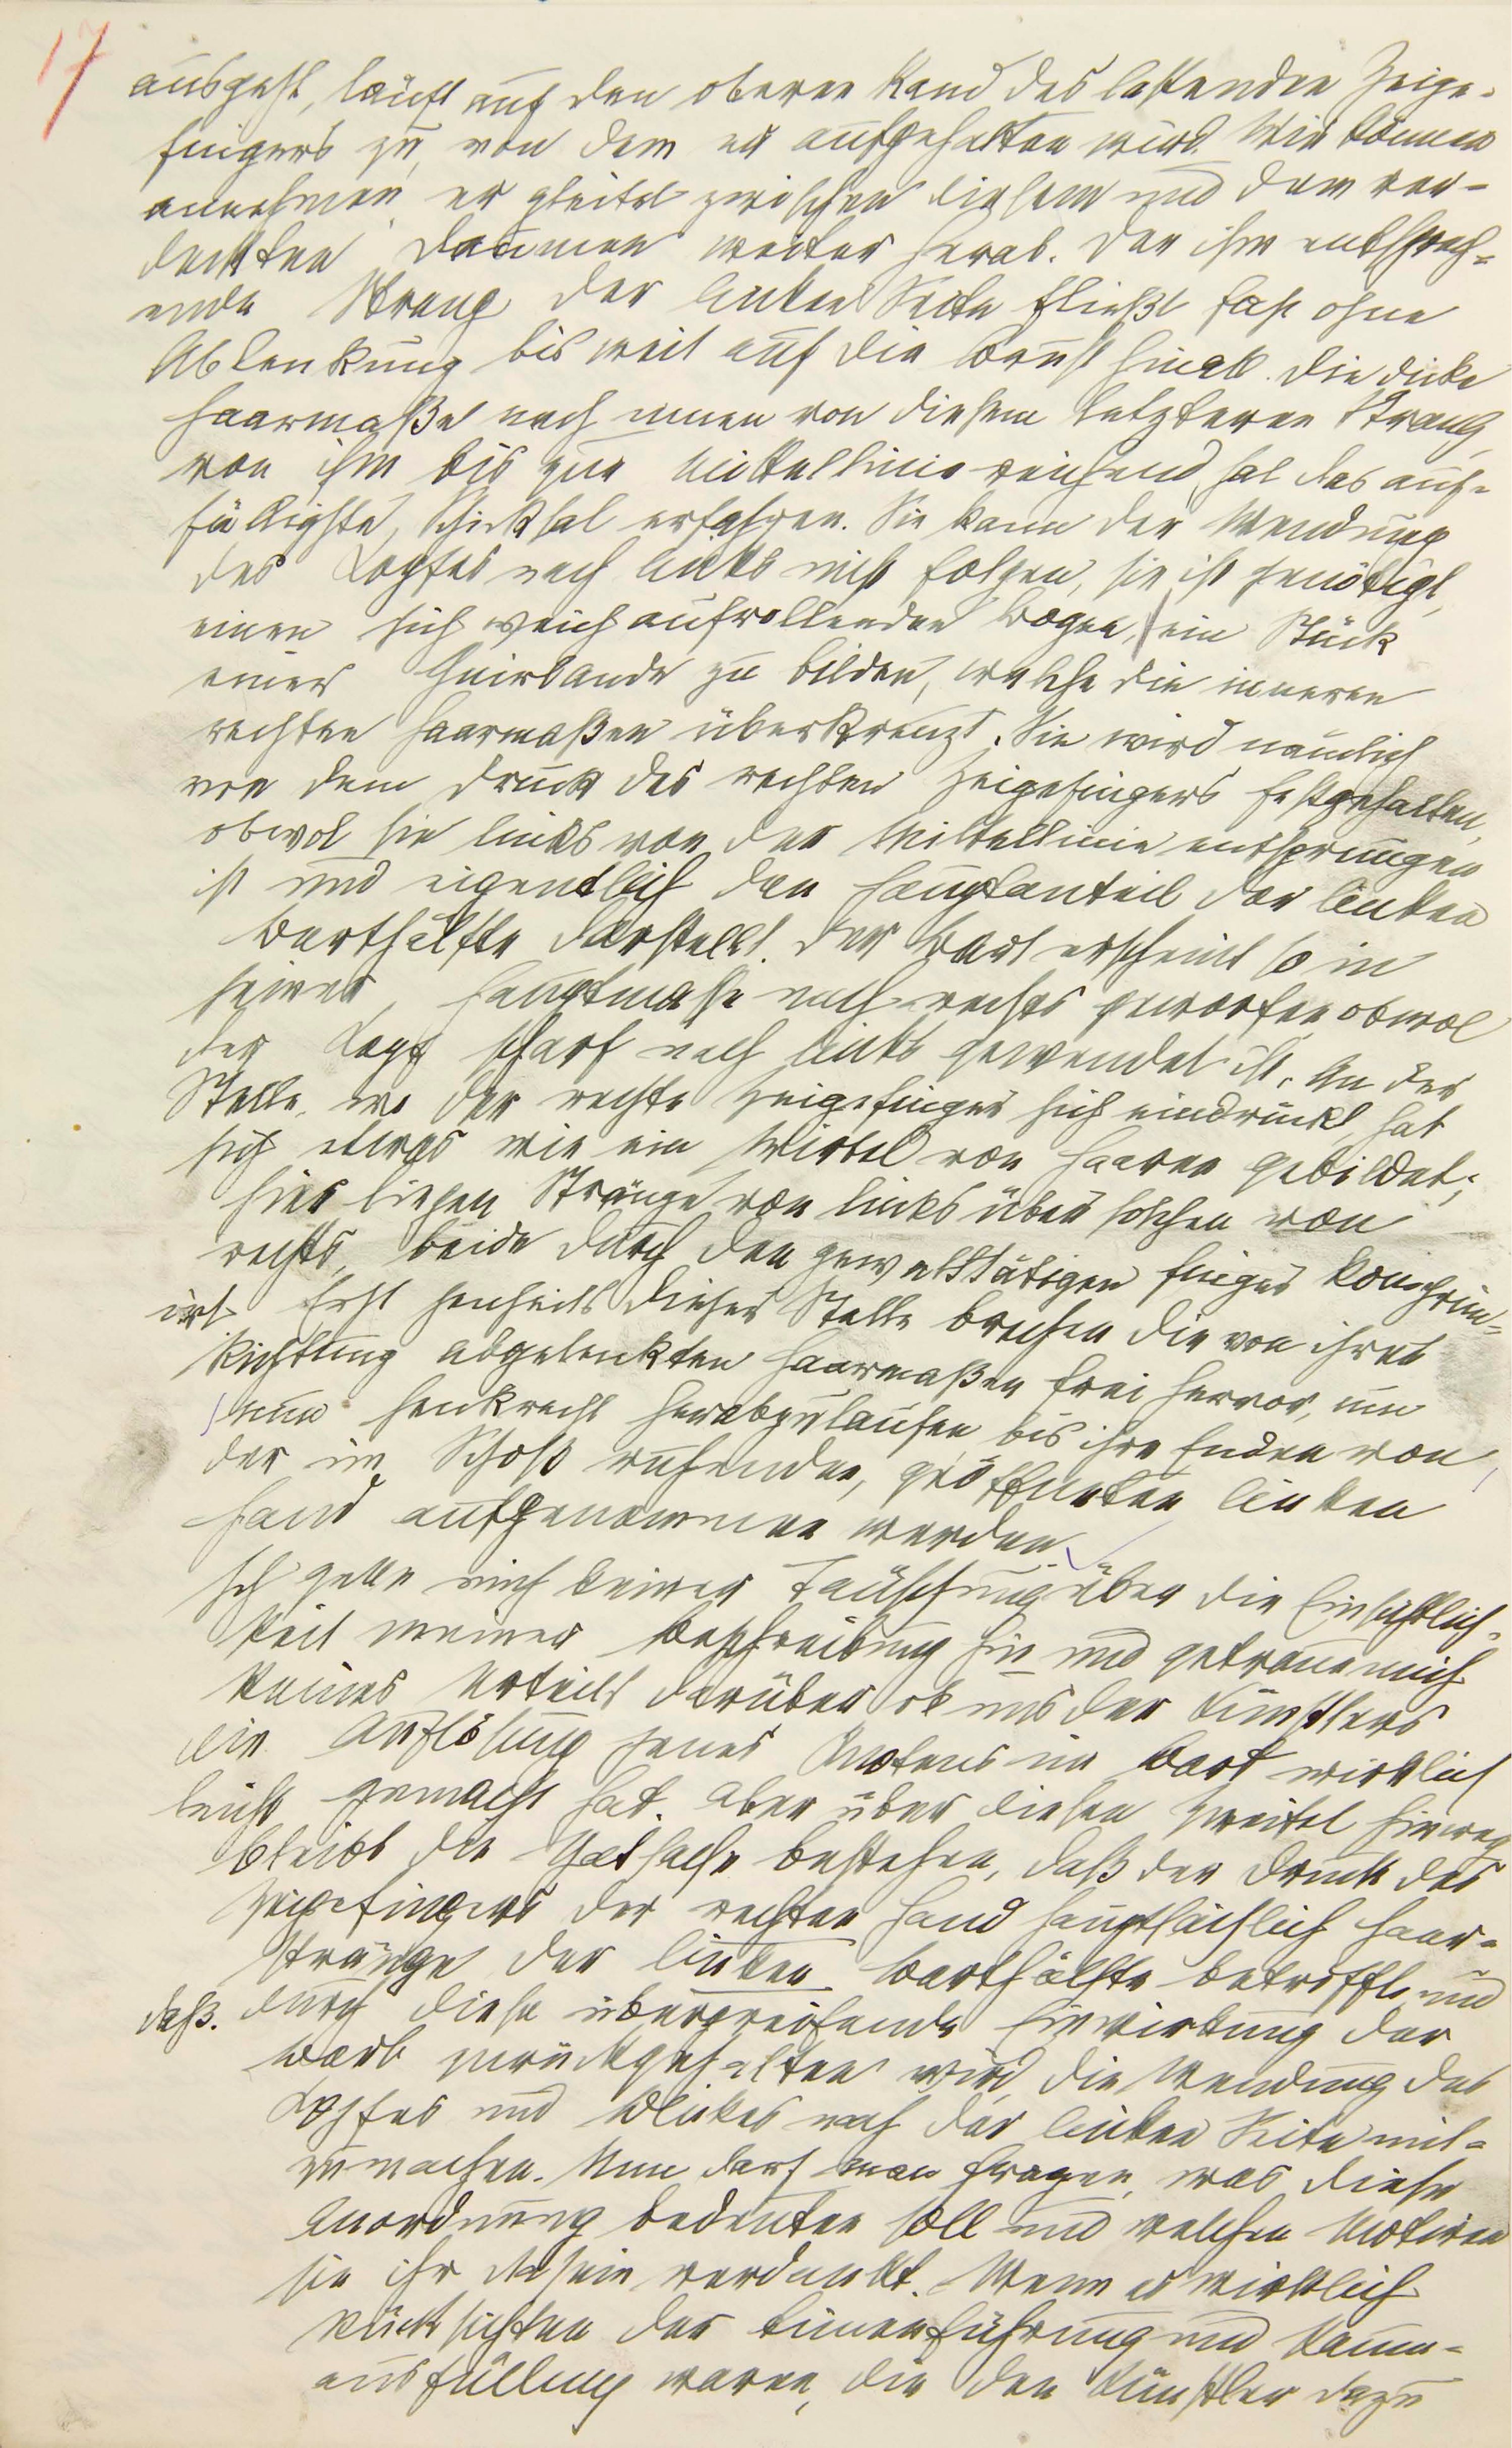 17
ausgeht, läuft auf den oberen Rand des lastenden Zeige-
fingers zu, von dem er aufgehalten wird. Wir können
annehmen, er gleitet zwischen diesem und dem ver-
deckten Daumen weiter herab. Der ihm entsprech-
ende Strang der linken Seite fließt fast ohne
Ablenkung bis weit auf die Brust hinab. Die dicke
Haarmaße nach innen von diesem letzteren Strang,
von ihm bis zur Mittellinie reichend, hat das auf-
fälligste Schicksal erfahren. Sie kann der Wendung
des Kopfes nach links nicht folgen, sie ist genötigt,
einen sich weich aufrollenden Bogen, ein Stück
einer Guirlande zu bilden, welche die inneren
rechten Haarmaßen überkreuzt. Sie wird nämlich
von dem Druck des rechten Zeigefingers festgehalten,
obwol sie links von der Mittellinie entsprungen
ist und eigentlich den Hauptanteil der linken
Barthälfte darstellt. Der Bart erscheint so in
seiner Hauptmasse nach rechts geworfen obwol
der Kopf scharf nach links gewendet ist. An der
Stelle, wo der rechte Zeigefinger sich eindrückt, hat
sich etwas wie ein Wirbel von Haaren gebildet;
hier liegen Stränge von links über solchen von
rechts, beide durch den gewalttätigen Finger komprim-
irt. Erst jenseits dieser Stelle brechen die von ihrer
Richtung abgelenkten Haarmaßen frei hervor, um
nun senkrecht herabzulaufen bis ihre Enden von
der im Schoß ruhenden, geöffneten linken
Hand aufgenommen werden.
Ich gebe mich keiner Täuschung über die Einsichtlich-
keit meiner Beschreibung hin und getraue mich
keines Urteils darüber ob uns der Künstlers
die Auflösung jenes Knotens im Bart wirklich
leicht gemacht hat. Aber über diesen Zweifel hinweg
bleibt die Thatsache bestehen, daß der Druck des
Zeigefingers der rechten Hand hauptsächlich Haar-
stränge der linken Barthälfte betrifft und
daß. durch diese übergreifende Einwirkung der
Bart zurückgehalten wird, die Wendung des
Kopfes und Blickes nach der linken Seite mit-
zumachen. Nun darf man fragen, was diese
Anordnung bedeuten soll und welchen Motiven
sie ihr Dasein verdankt. Wenn es wirklich
Rücksichten der Linienführung und Raum-
ausfüllung waren, die den Künstler dazu